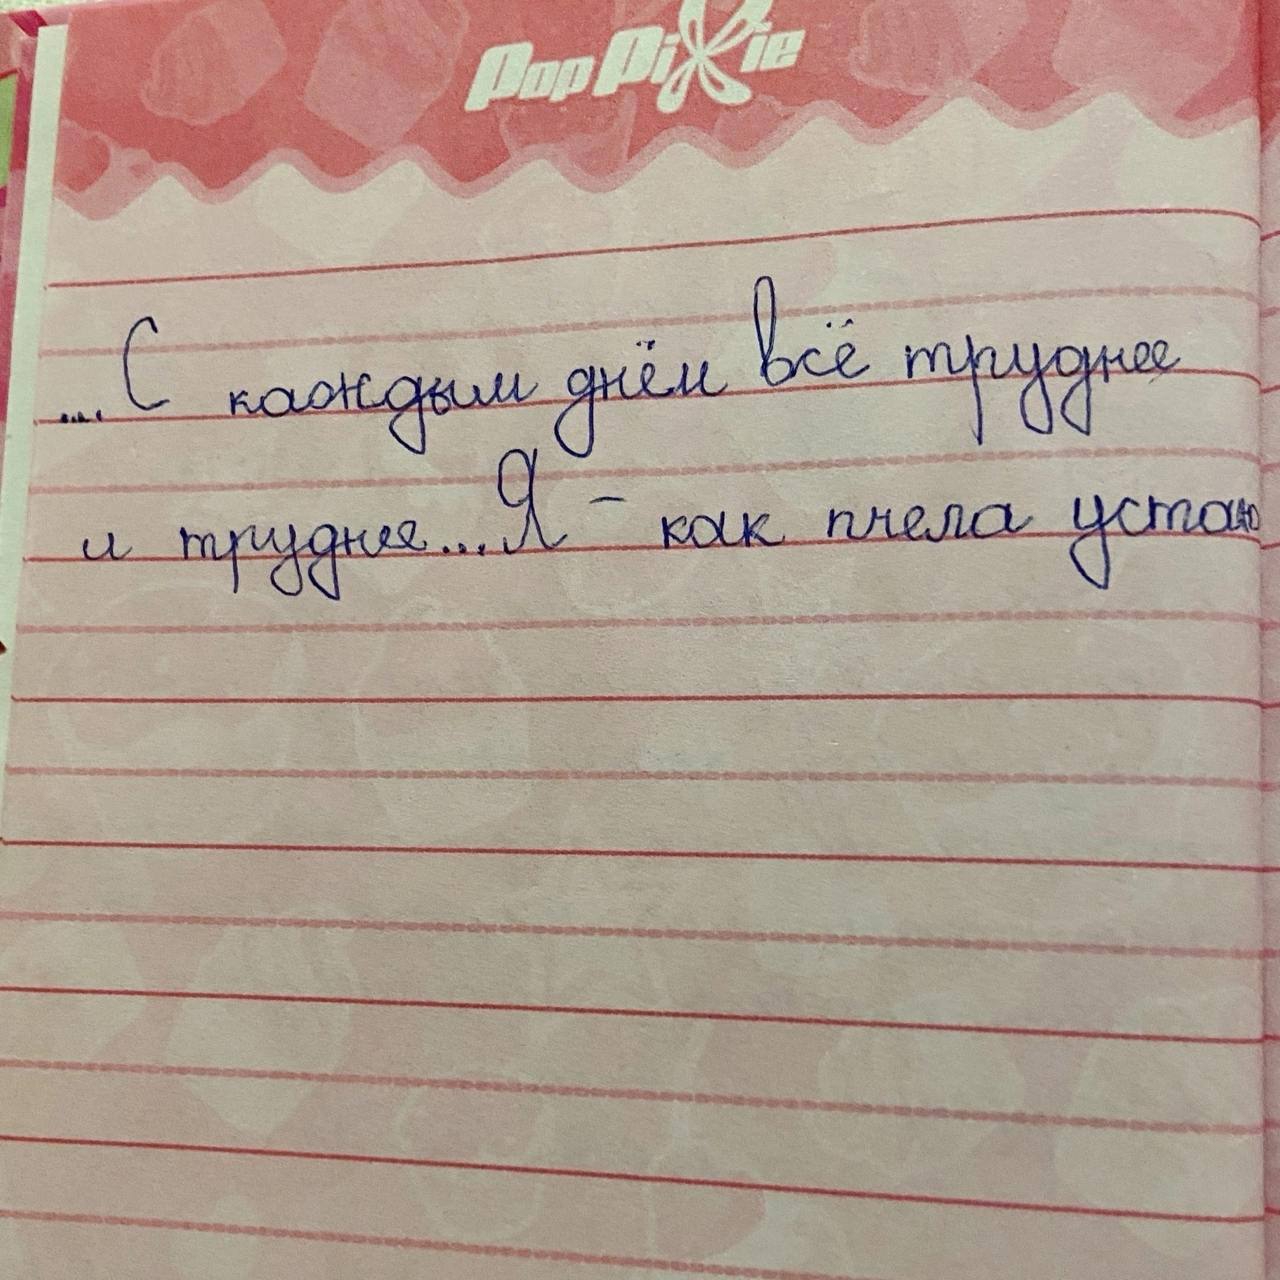 PopPixie
....С каждым днём всё труднее
и труднее...Я - как пчела устаю